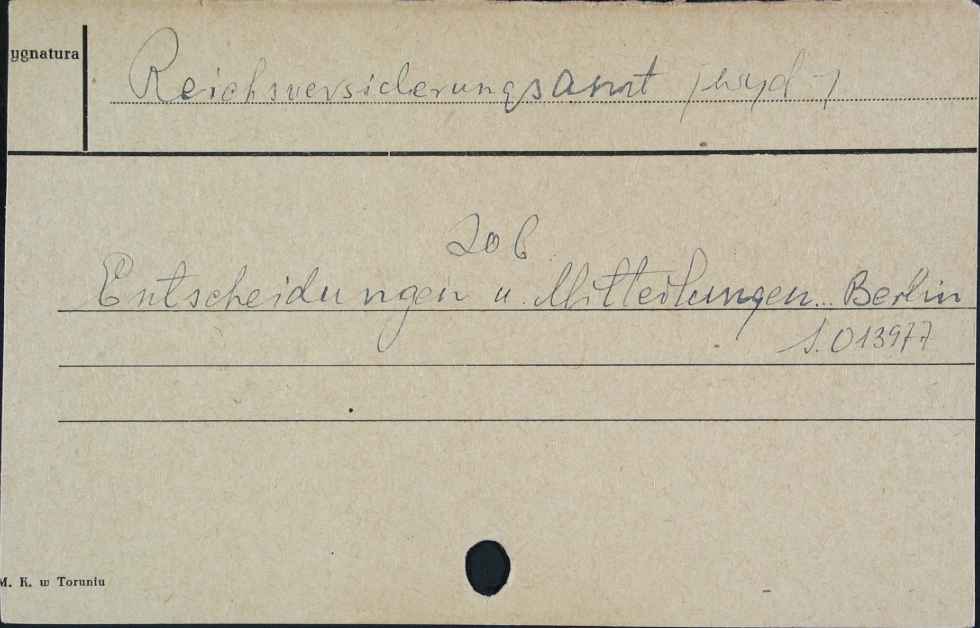 ygnatura
Reichsversicherungsamt /wyd-/
Zob
Entscheidungen u. Mitteilungen... Berlin
S. 013977
M. K. w Toruniu